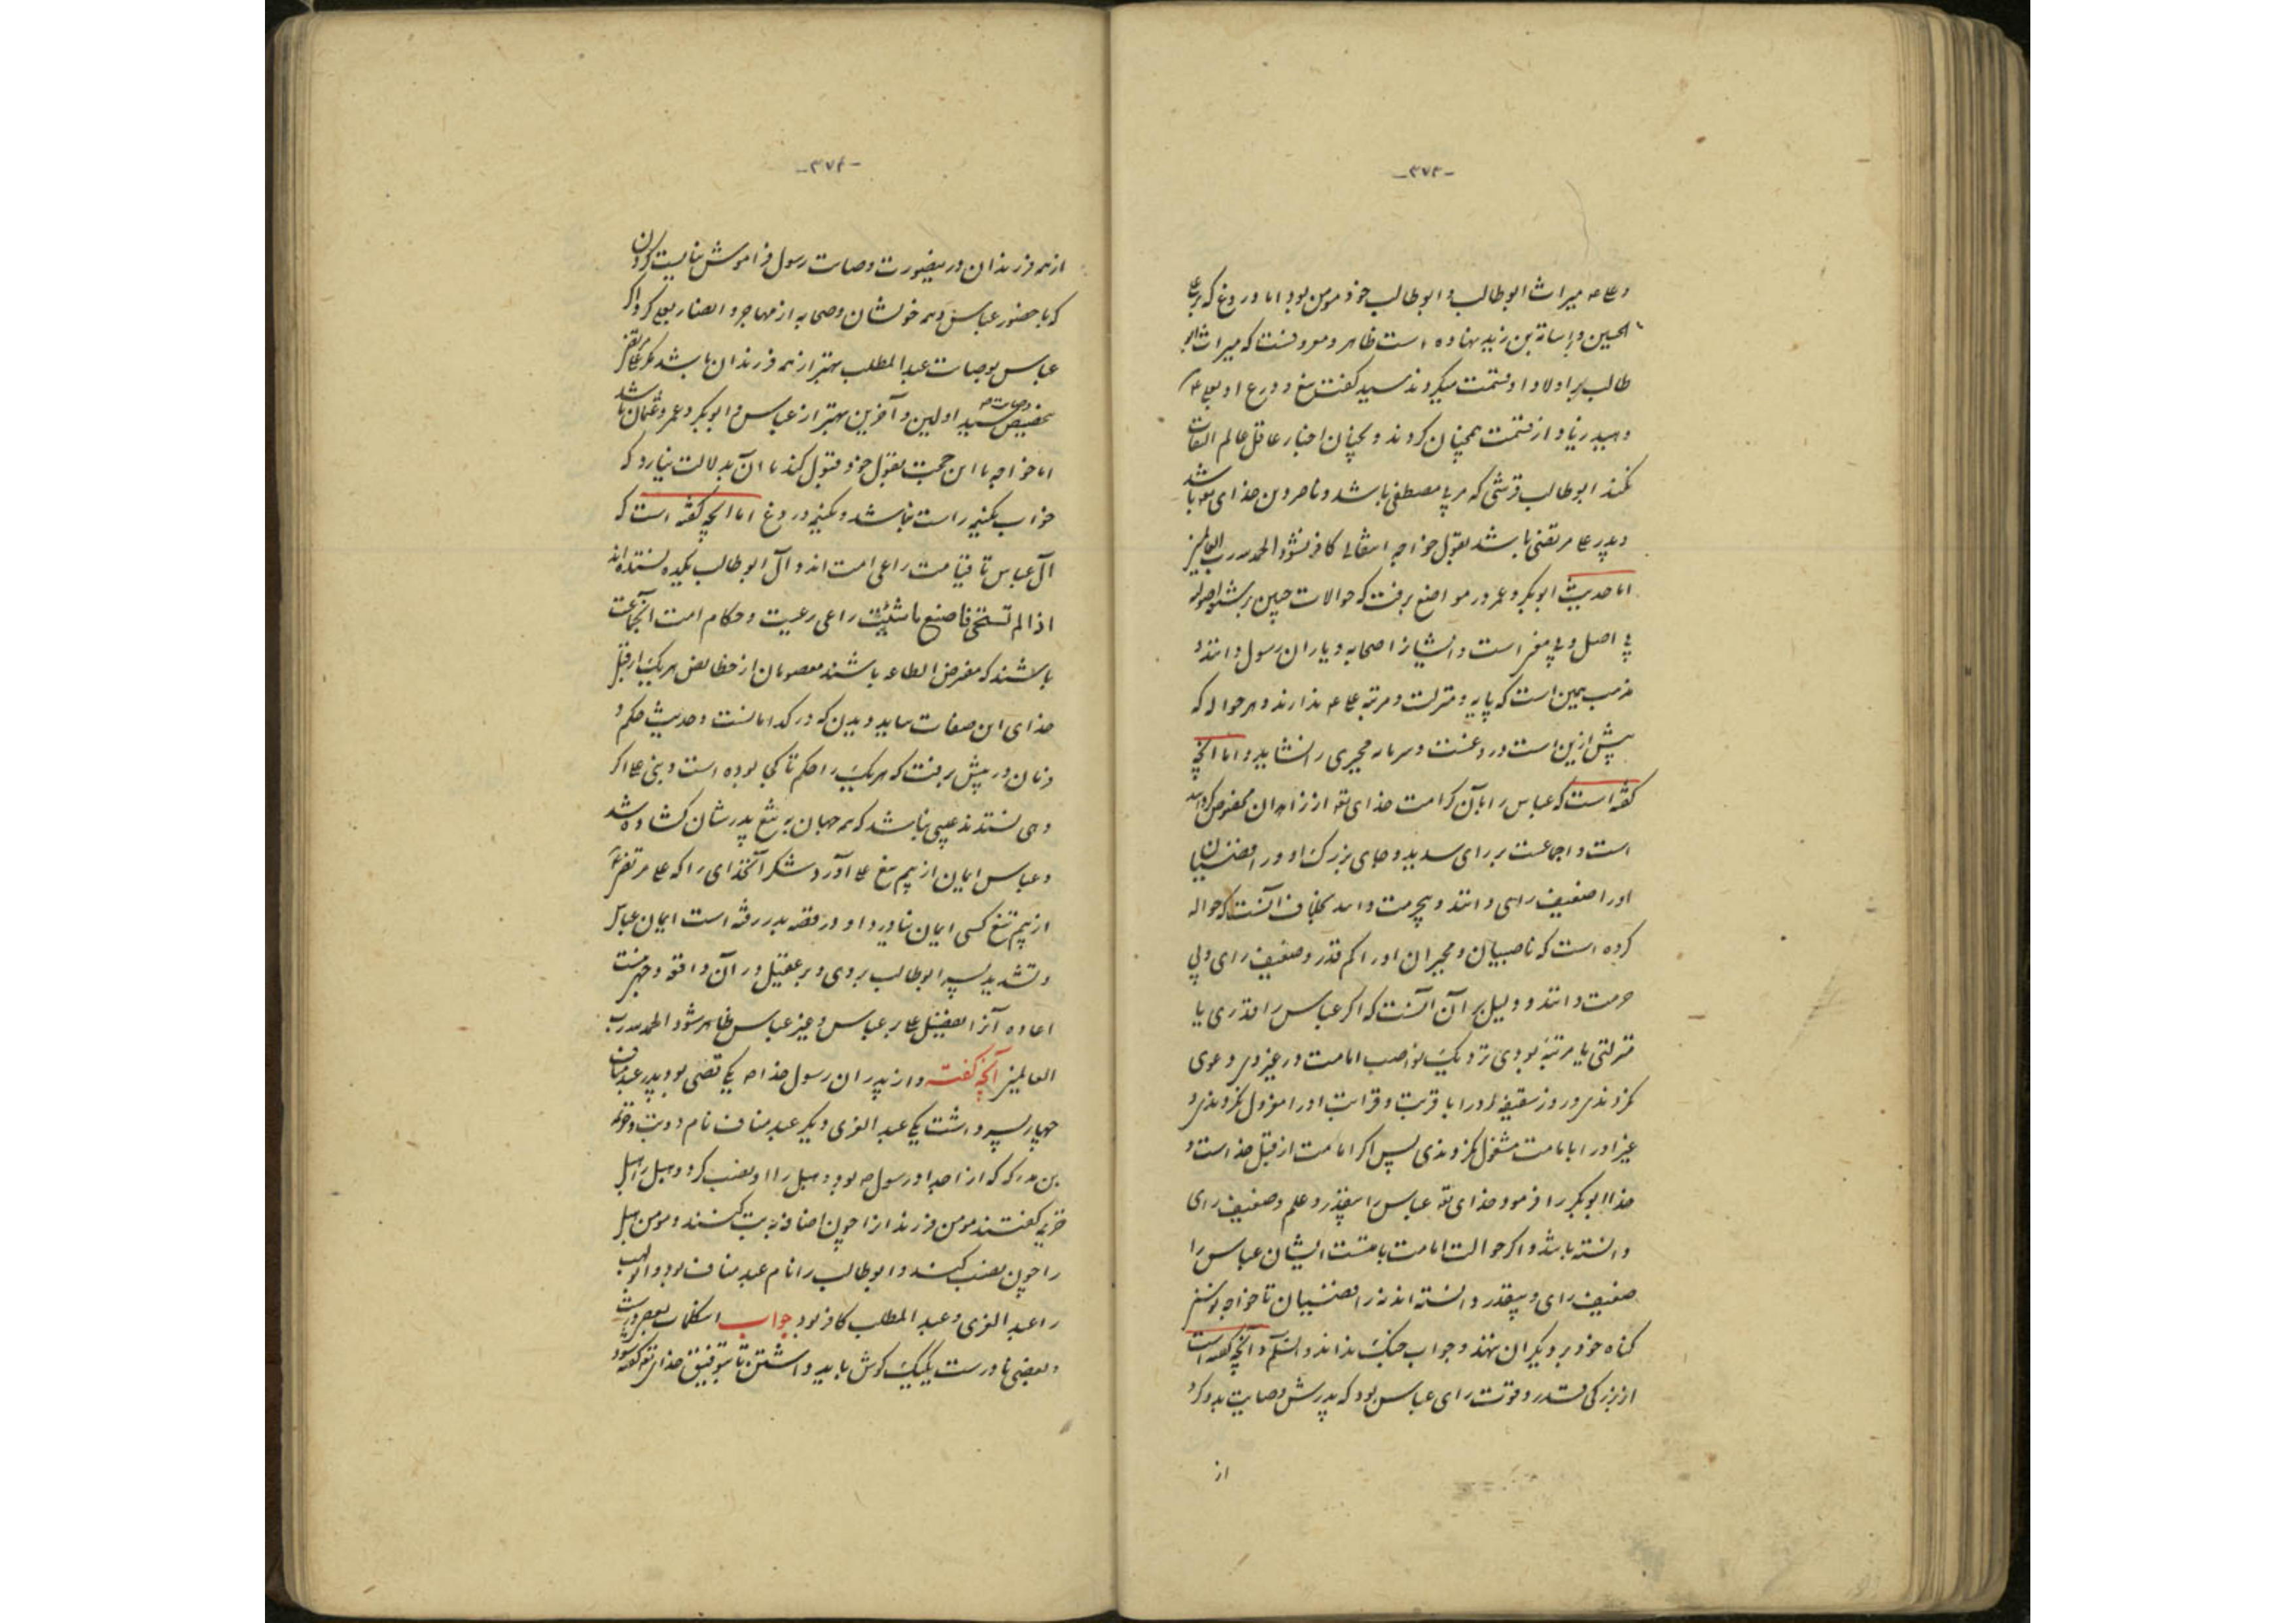 -۳۷۳-
و علی میراث ابوطالب و ابوطالب خود مومن بود اما دروغ که بر علی
الحسین و اسامة بن زید نهاده است ظاهر و معروفست که میراث ابو
طالب بر اولاد او قسمت میکردند سید گفت
قسمت همچنان کردند و همچنان اخبار عاقل عالم التفات
نکند ابوطالب قرشی که مربی مصطفی باشد و ناصر دین خدای تعه باشد
و پدر علی مرتضی باشد بقول خواجه انتقالی کافر نشود الحمد لله رب العالمین
اما حدیث ابوبکر و عمر در مواضع برفت که حوالات چنین
بی اصل و بی مغز است و ایشانرا صحابه و یاران رسول دانند و
مذهب همین است که پایه و منزلت و مرتبه علی ندارند و هر حواله که
پیش ازین است دروغست و سرمایه مجبری را نشاید و اما آنچه
گفته است که عباس را بآن کرامت خدای تعه از زاهدان مخصوص کرده
است و اجماعت بر رای سدید و جای بزرگ او و رافضیان
او را ضعیف رای دانند و بیحرمت دانند بخلاف آنست که حواله
کرده است که ناصبیان و مجبران او را کم قدر و ضعیف رای و بی
حرمت دانند و دلیل بر آن آنست که اگر عباس را قدری یا
منزلتی یا مرتبه بودی نزدیک نواصب امامت در غیر وی دعوی
نکردندی و روز سقیفه او را با قربت و قرابت او را معزول نکردندی و
غیر او را بامامت مشغول نکردندی پس اگر امامت از قبل خداست و
خدا ابوبکر را فرمود خدای تعه عباس را بیقدر و علم و ضعیف رای
دانسته باشد و اگر حوالت امامت بامتست ایشان عباس را
ضعیف رای و بیقدر دانسته اند نه رافضیان تا خواجه نوسنی
گناه خود بر دیگران ننهد و جواب جنگ نداند و السلم و آنچه گفته است
از بزرگی قدر و قوت رای عباس بود که پدرش وصایت بدو کرد
از
-۳۷۴-
از همه فرزندان درینصورت وصایت رسول فراموش نبایست کردن
که با حضور عباس و همه خویشان وصی به از مهاجر و انصار بعلی کرد اگر
عباس بوصایت عبدالمطلب بهتر از همه فرزندان باشد مگر علی مرتضی
بتخصیص وصایت سید اولین و آخرین بهتر از عباس و ابوبکر و عمر و عثمان باشد
اما خواجه با این حجت بقول خود قبول کند با آن بدلالت نیارد که
خواب بکنیه راست نباشد و بکنیه دروغ اما آنچه گفته است که
آل عباس تا قیامت راعی امت اند و آل ابوطالب بکدیه نشسته اند
اذا لم تستحی فاصنع ما شئت راعی رعیت و حکام امت آنجماعت
باشند که مفترض الطاعه باشند معصومان از خطا بنص هر یک از قبل
خدای این صفات بباید دیدن که در کدامانست و حدیث حکم و
فرمان در پیش برفت که هر یک را حکم تا کی بوده است و بنی علی اگر
دهی نستدند عیبی نباشد که همه جهان به تیغ پدرشان گشاده شد
و عباس ایمان از بیم تیغ علی آورد شکر آنخدای را که علی مرتضی
از بیم تیغ کسی ایمان نیاورد و او در قصه بدر رفته است ایمان عباس
و تشدید پسر ابوطالب بر وی و بر عقیل در آن واقعه
اعاده آنرا تفضیل علی بر عباس و غیر عباس ظاهر شود الحمد لله رب
العالمین آنچه گفته و از پدران رسول خدا ص یکی قصی بود پدر عبد مناف
چهار پسر داشت یکی عبد العزی و دیگر عبد مناف نام دو بت و خزیمه
بن مدرکه که از اجداد رسول ص بود و هبل را او نصب کرد و هبل را هبل
خزیمه گفتند مومن فرزند از او چون اضافه به بت کنند و مومن هبل
را چون نصب کند و ابوطالب را نام عبد مناف بود و ابولهب
را عبد العزی و عبد المطلب کافر بود جواب اینکلمات بعضی درست
و بعضی نادرست یکیک گوش باید داشتن تا بتوفیق خدای تعه گفته شود